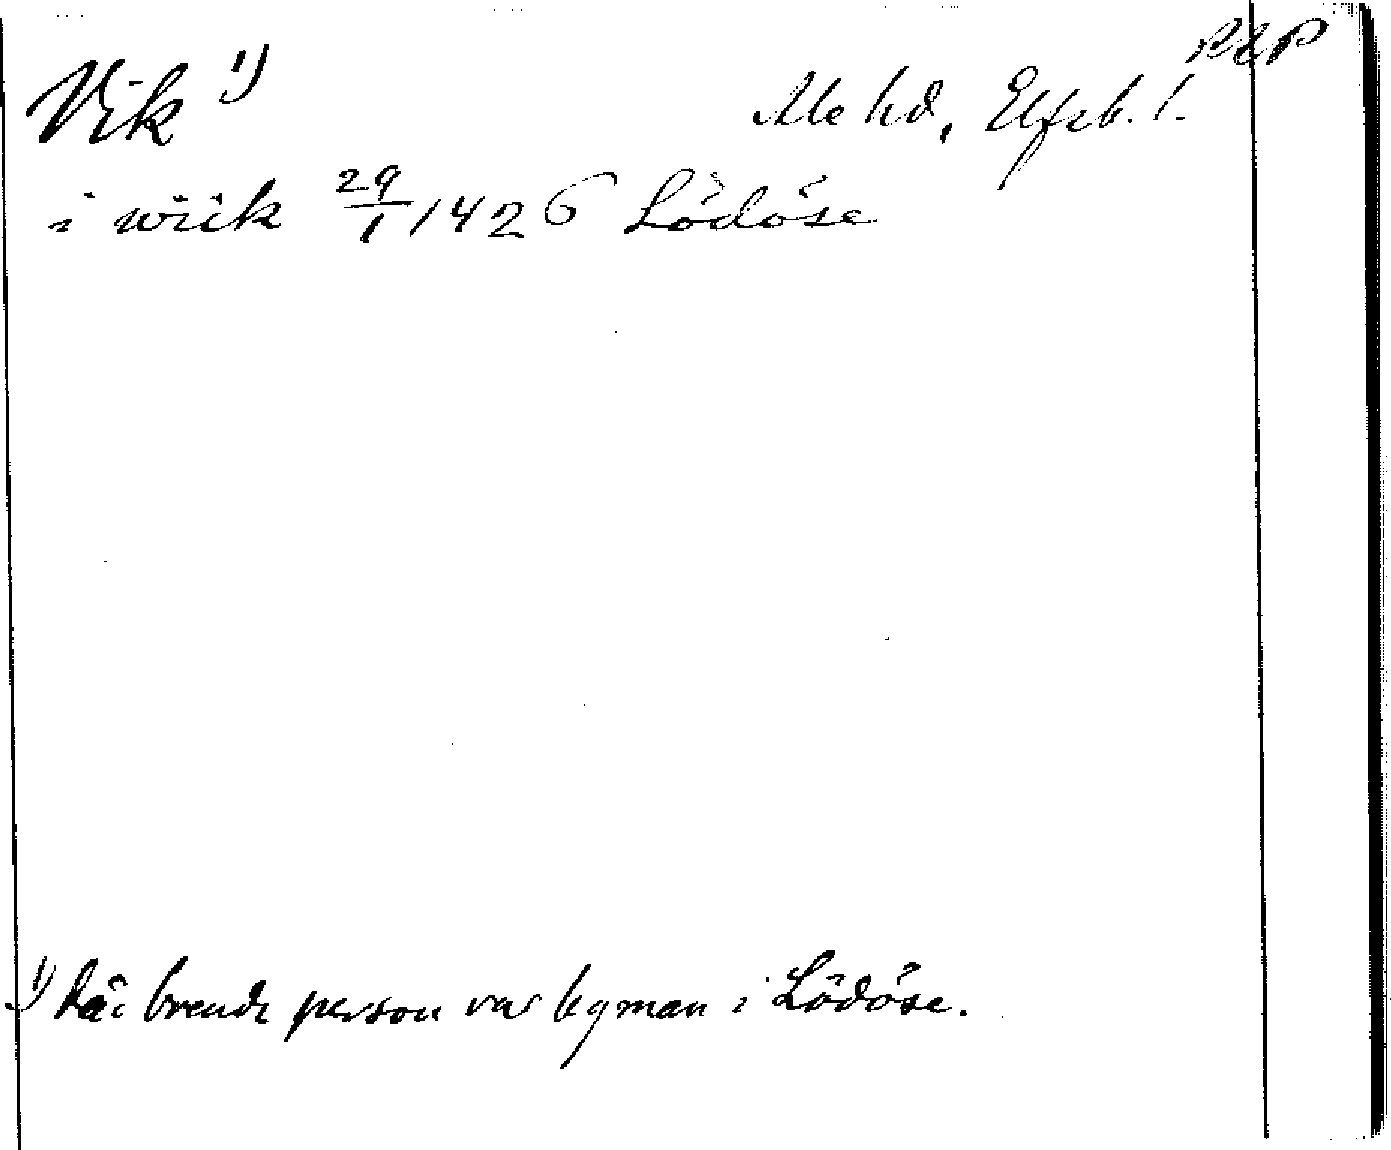 Vik 1)
Ale hd, Elfsb. l.
i wiik 29/1 1426 Lödöse
1) här boende person var bgman i Lödöse.